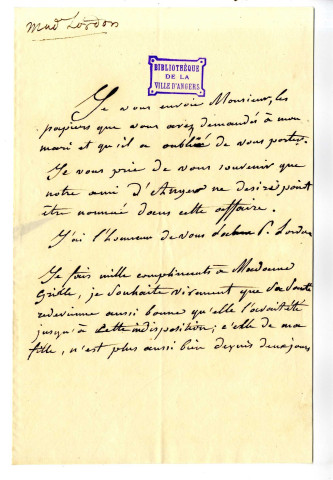 Mad. Lordon
BIBLIOTHÈQUE
DE LA
VILLE D'ANGERS
Je vous envoie Monsieur, les
papiers que vous avez demandés à mon
mari et qu'il a oublié de vous porter.
Je vous prie de vous souvenir que
notre ami d'Angers ne desire point
être nommé dans cette affaire.
J'ai l'honneur de vous saluer P. Lordon
Je fais mille compliments à Madame
Grille, je souhaite vivement que sa santé
redevienne aussi bonne qu'elle l'avait été
jusqu'à cette indisposition; celle de ma
fille, n'est plus aussi bien depuis deux jours